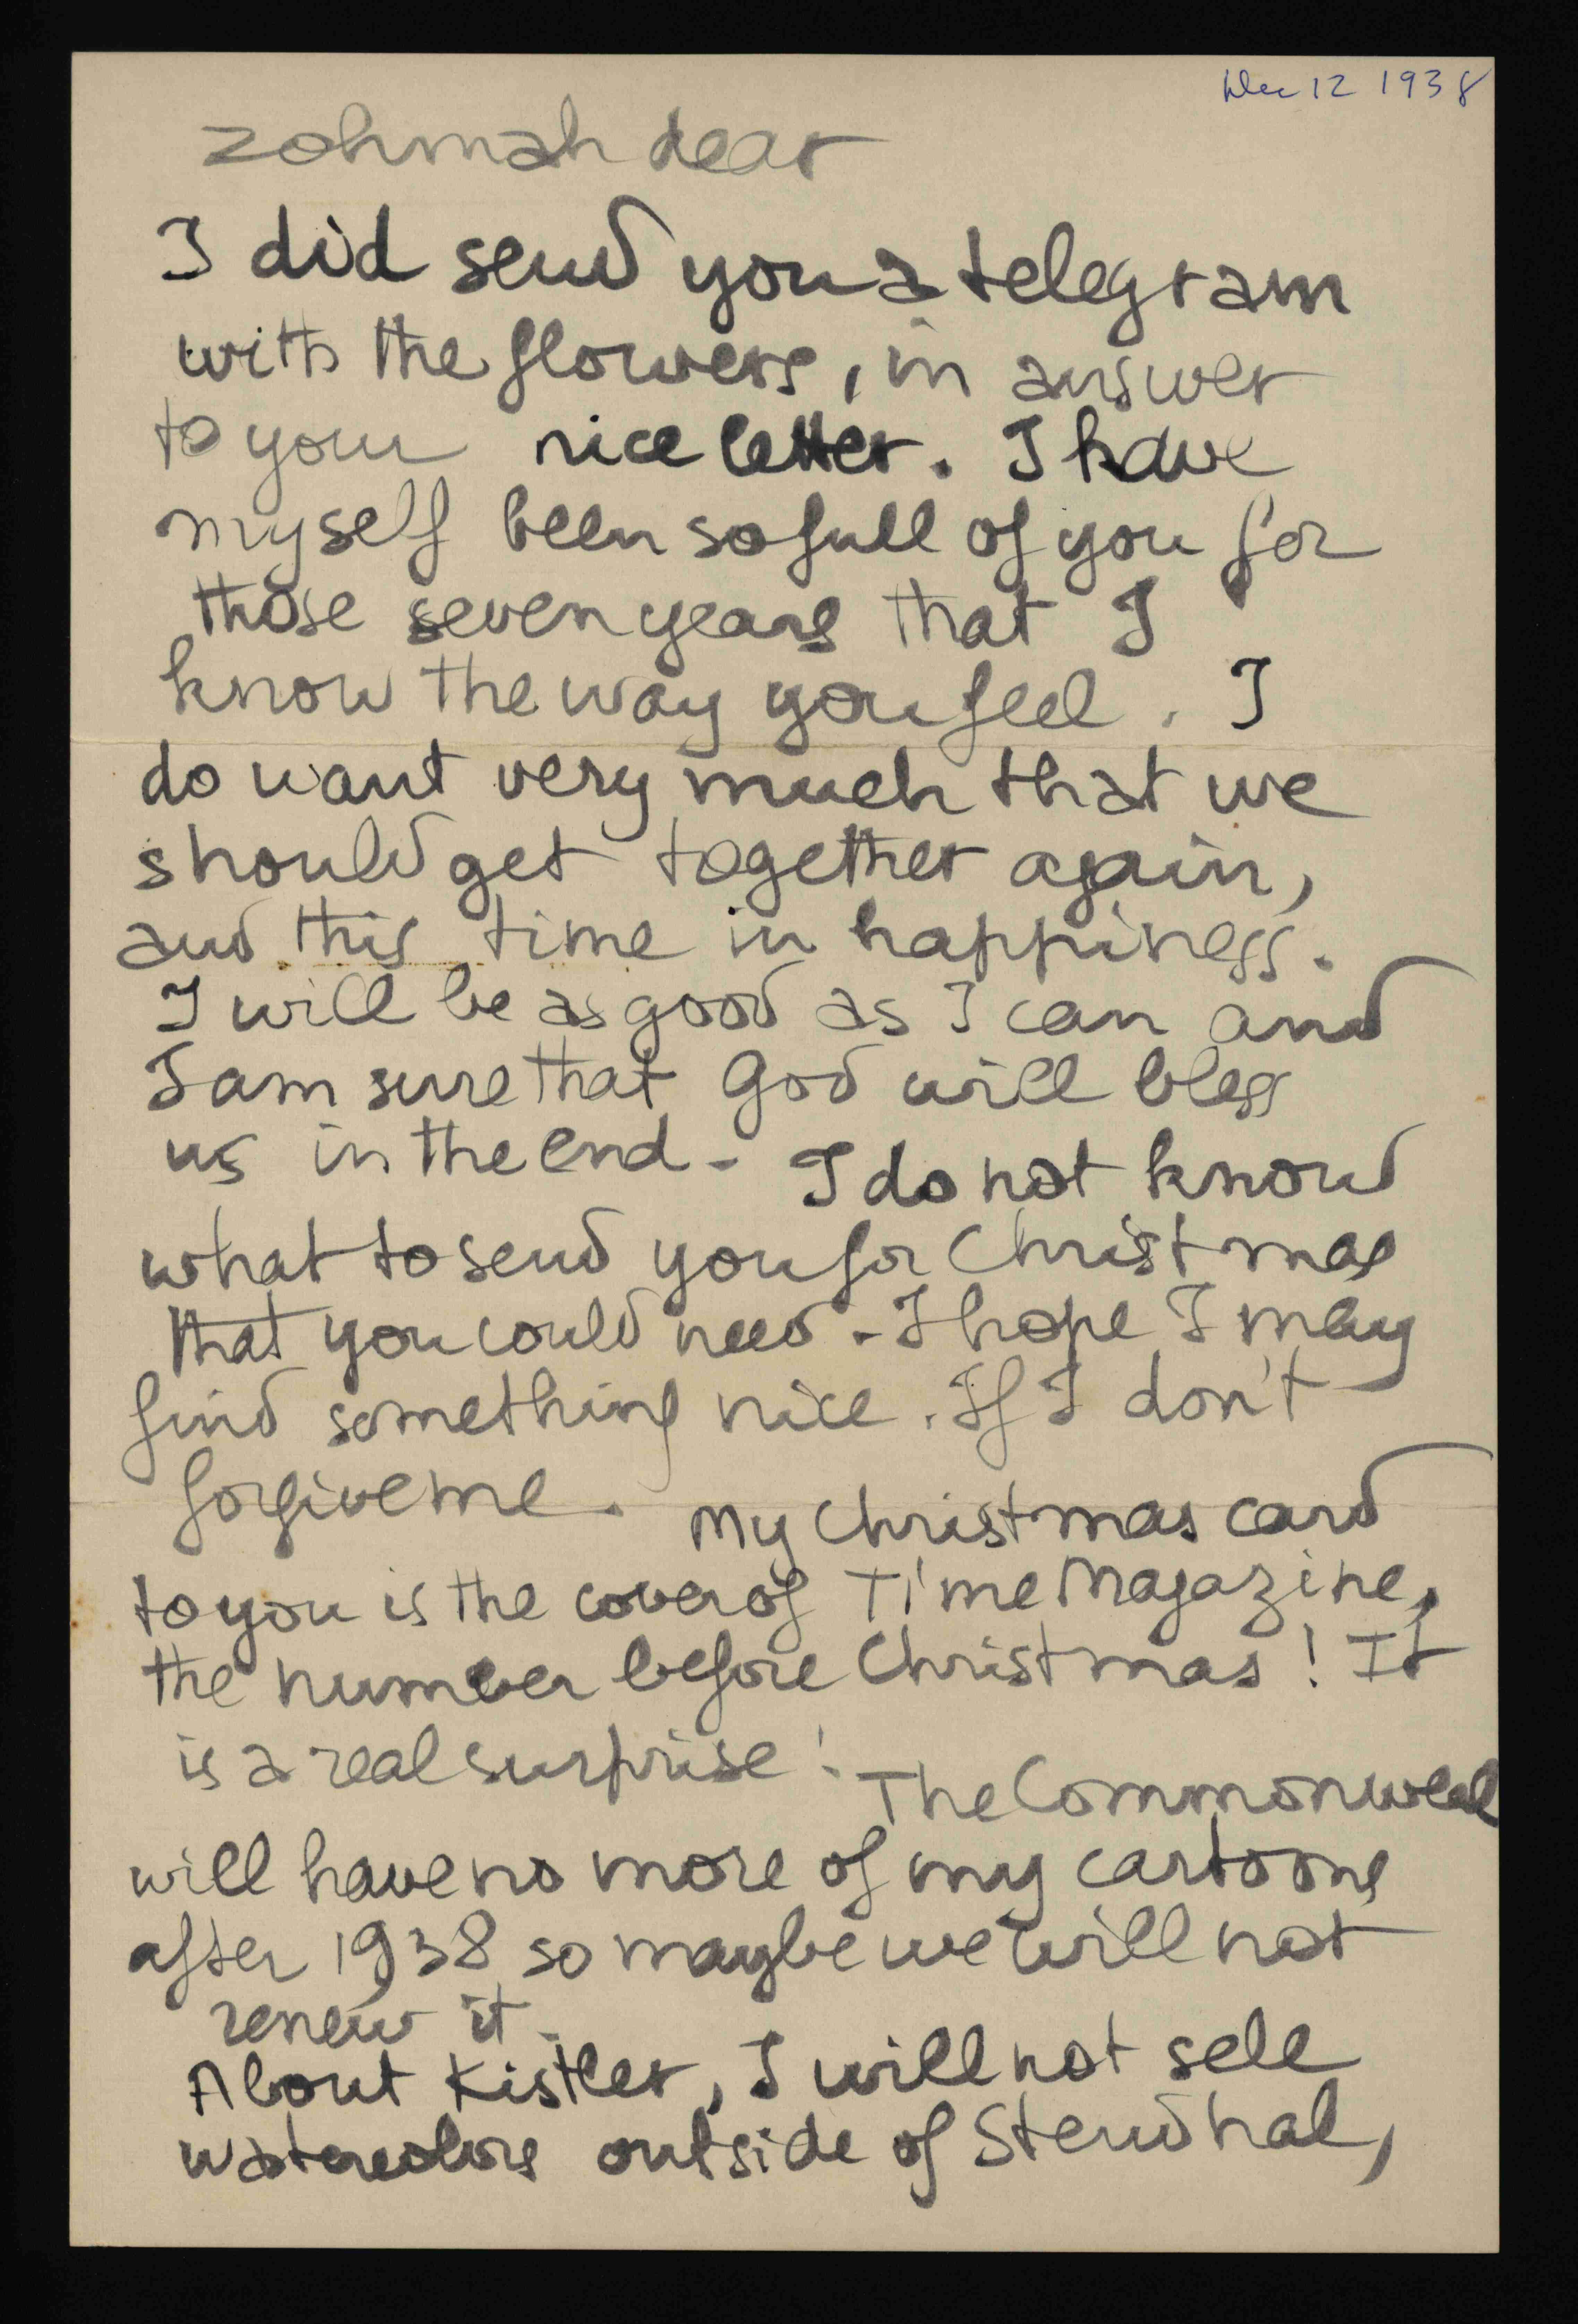 Dec 12 1938
Zohmah dear
I did send you a telegram
with the flowers, in answer
to your nice letter. I have
myself been so full of you for
those seven years that I
know the way you feel. I
do want very much that we
should get together again,
and this time in happiness.
I will be as good as I can and
I am sure that God will bless
us in the end - I do not know
what to send you for Christmas
that you could need - I hope I may
find something nice. If I don't
forgive me. My Christmas card
to you is the cover of Time Magazine,
the number before Christmas! It
is a real surprise! The Commonweal
will have no more of my cartoons
after 1938 so maybe we will not
renew it.
About Kistler, I will not sell
watercolors outside of Stendhal,